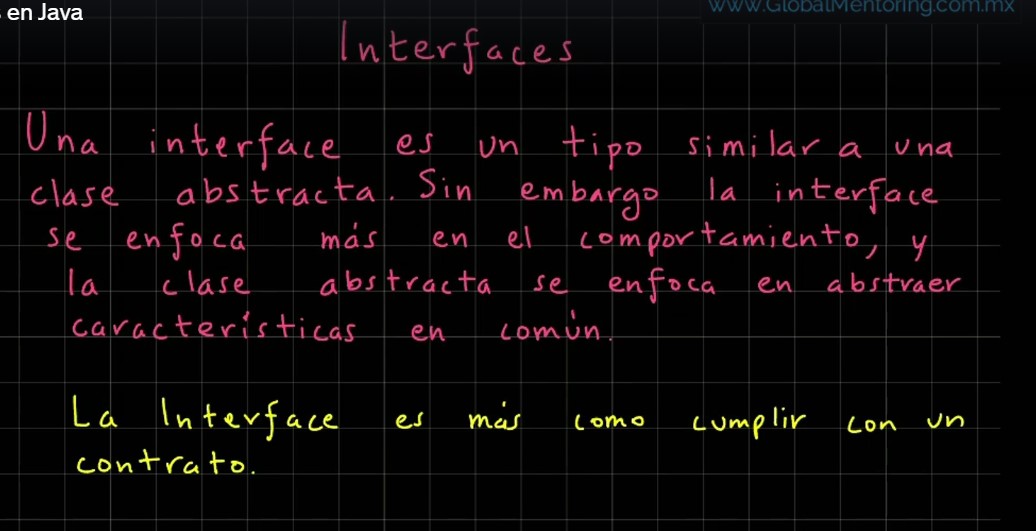 en Java
www.GlobalMentoring.com.mx
Interfaces
Una interface es un tipo similar a una
clase abstracta. Sin embargo la interface
se enfoca más en el comportamiento, y
la clase abstracta se enfoca en abstraer
características en común.
La Interface es más como cumplir con un
contrato.